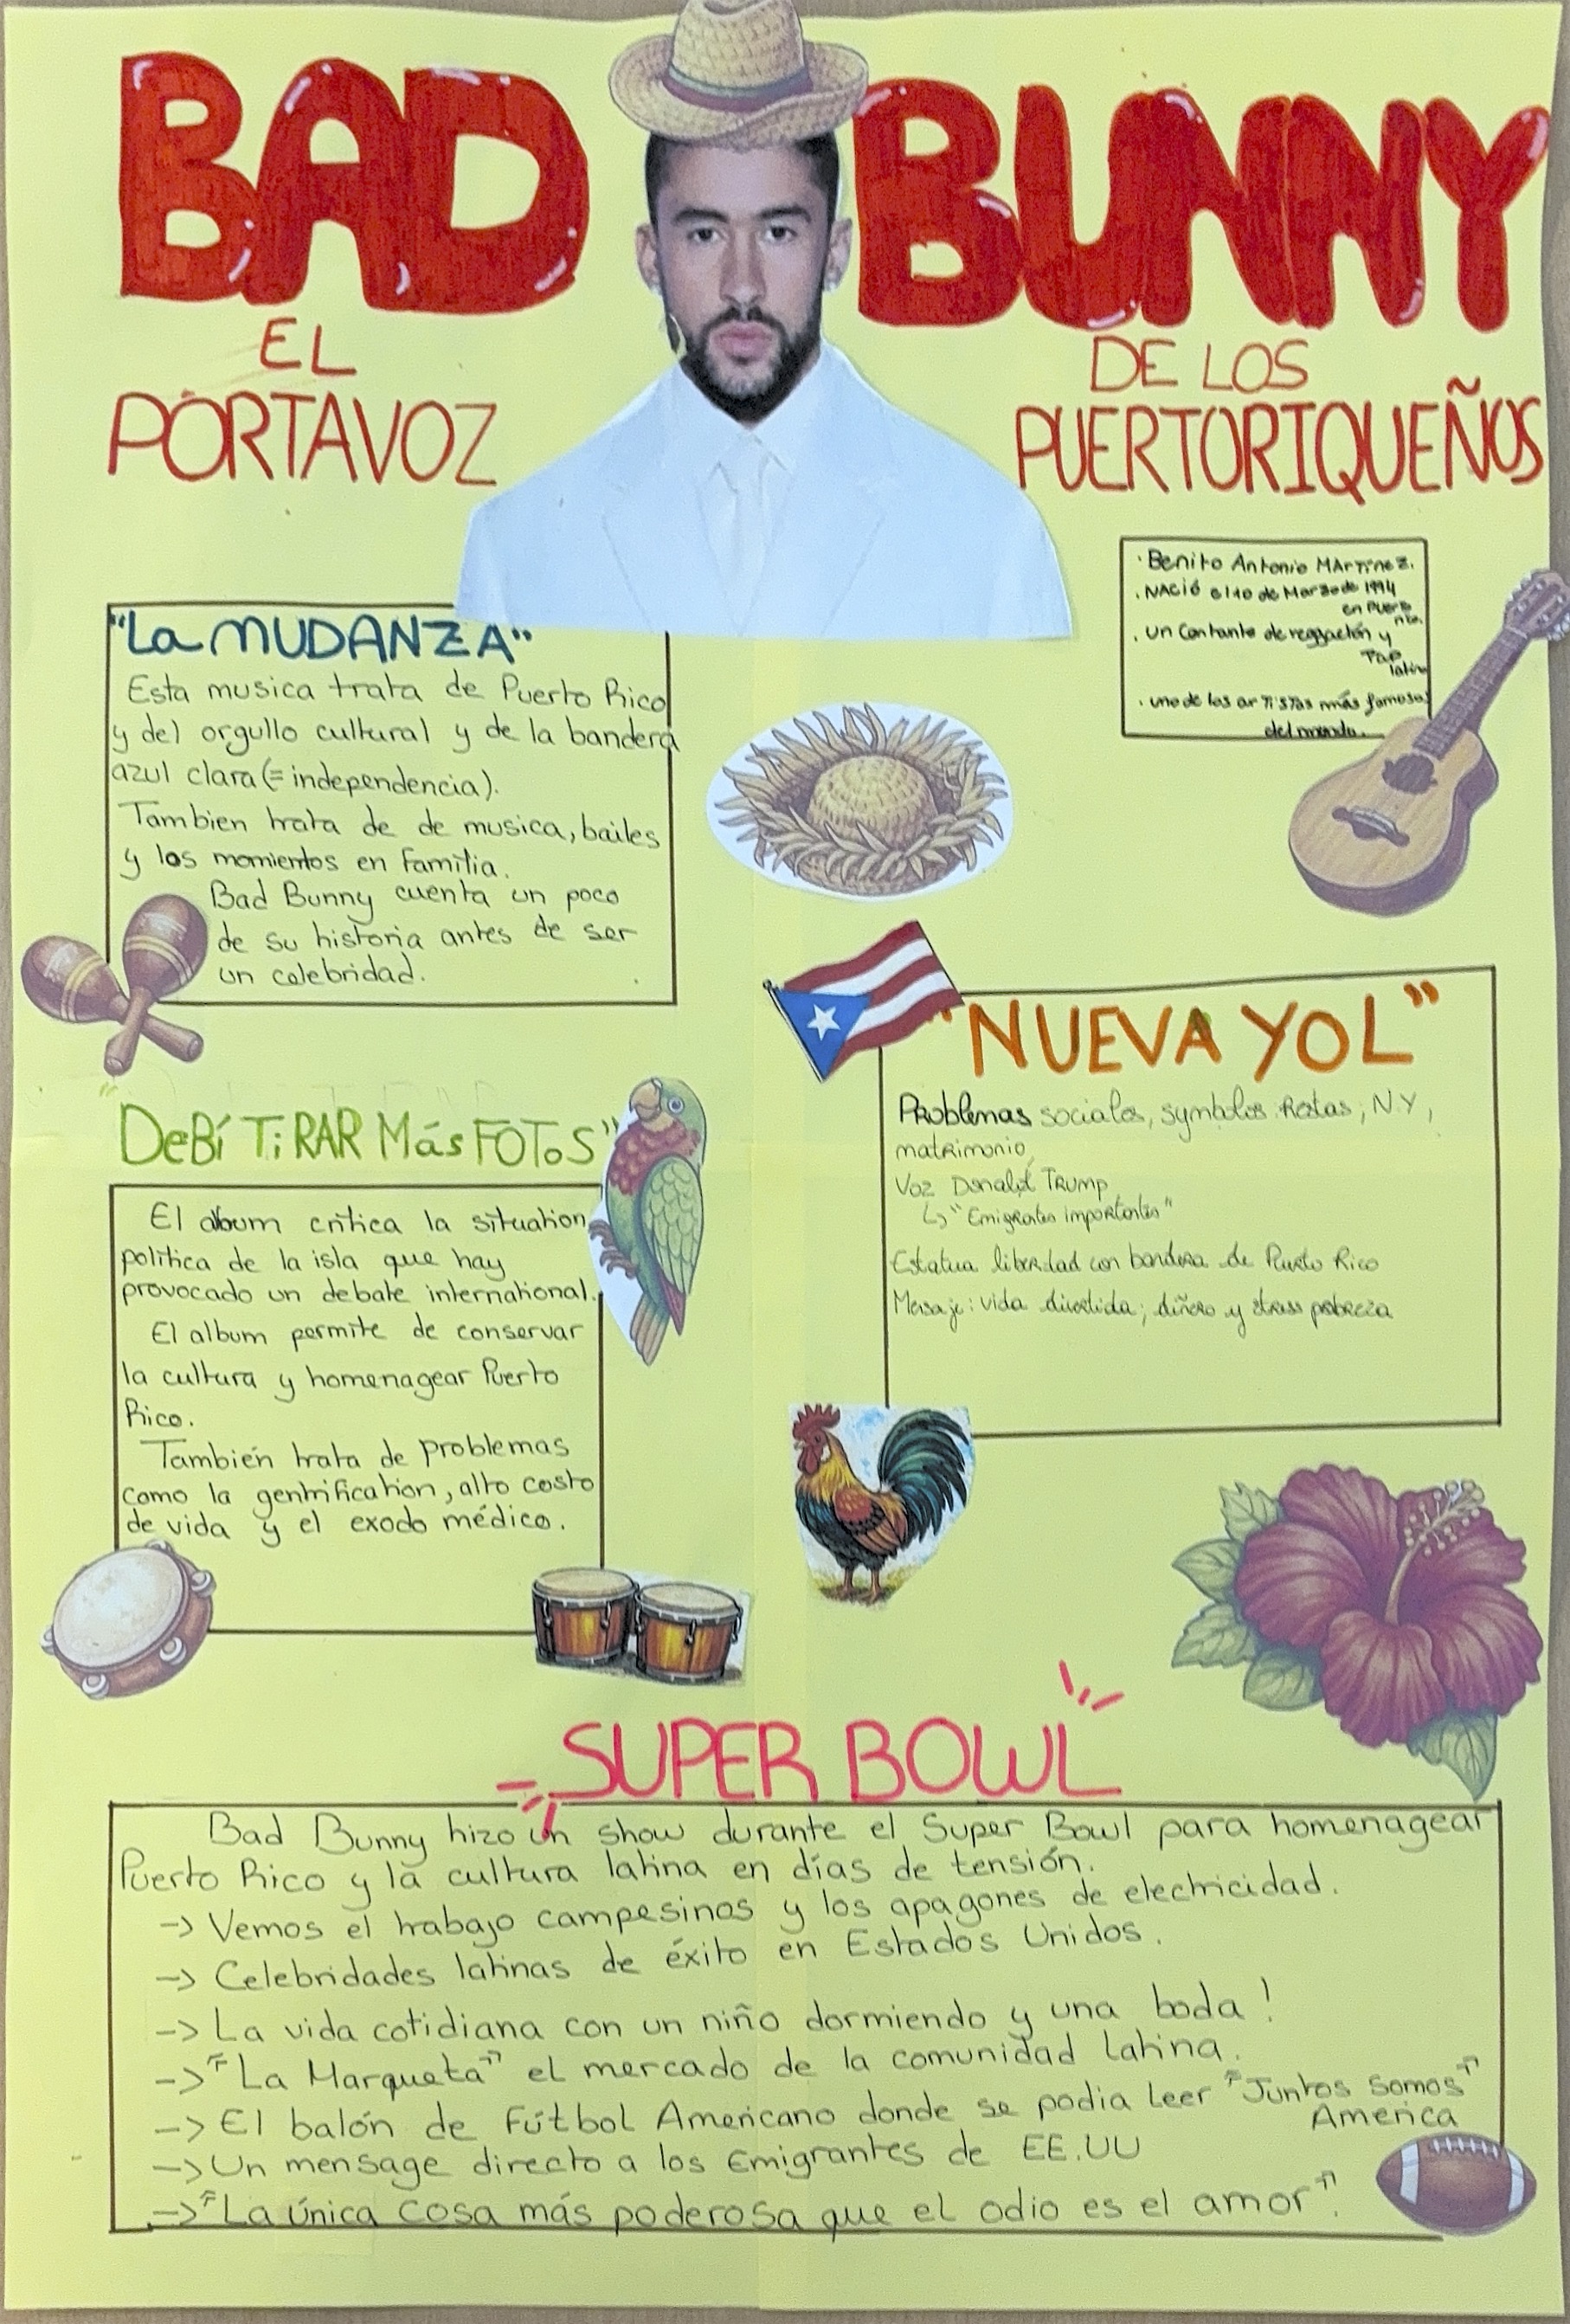 BAD BUNNY
EL
PORTAVOZ
DE LOS
PUERTORIQUEÑOS
· Benito Antonio MArTíneZ.
. NACió el 10 de Marzo de 1994
en Puerto
rico.
. un Cantante de reggaetón y
Trap
latino
. uno de los arTisTas más famosos
del mundo.
"La MUDANZA"
Esta musica trata de Puerto Rico
y del orgullo cultural y de la bandera
azul clara (= independencia).
Tambien trata de de musica, bailes
y los momientos en familia.
Bad Bunny cuenta un poco
de su historia antes de ser
un celebridad.
"NUEVA YOL"
Problemas sociales, symbolos fiestas, N.Y,
matrimonio,
Voz Donald Trump
↳ "Emigrantes importantes"
Estatua libertad con bandera de Puerto Rico
Mensaje: vida divertida; diñero y stress pobreza
"DeBí TiRAR Más FOToS"
El album critica la situation
política de la isla que hay
provocado un debate international.
El album permite de conservar
la cultura y homenagear Puerto
Rico.
También trata de problemas
como la gentrification, alto costo
de vida y el exodo médico.
SUPER BOWL
Bad Bunny hizo un show durante el Super Bowl para homenagear
Puerto Rico y la cultura latina en días de tensión.
-> Vemos el trabajo campesinos y los apagones de electricidad.
-> Celebridades latinas de éxito en Estados Unidos.
-> La vida cotidiana con un niño dormiendo y una boda !
-> "La Marqueta" el mercado de la comunidad latina.
-> El balón de Fútbol Americano donde se podia leer "Juntos somos"
America
-> Un mensage directo a los Emigrantes de EE.UU
-> "La única cosa más poderosa que el odio es el amor".